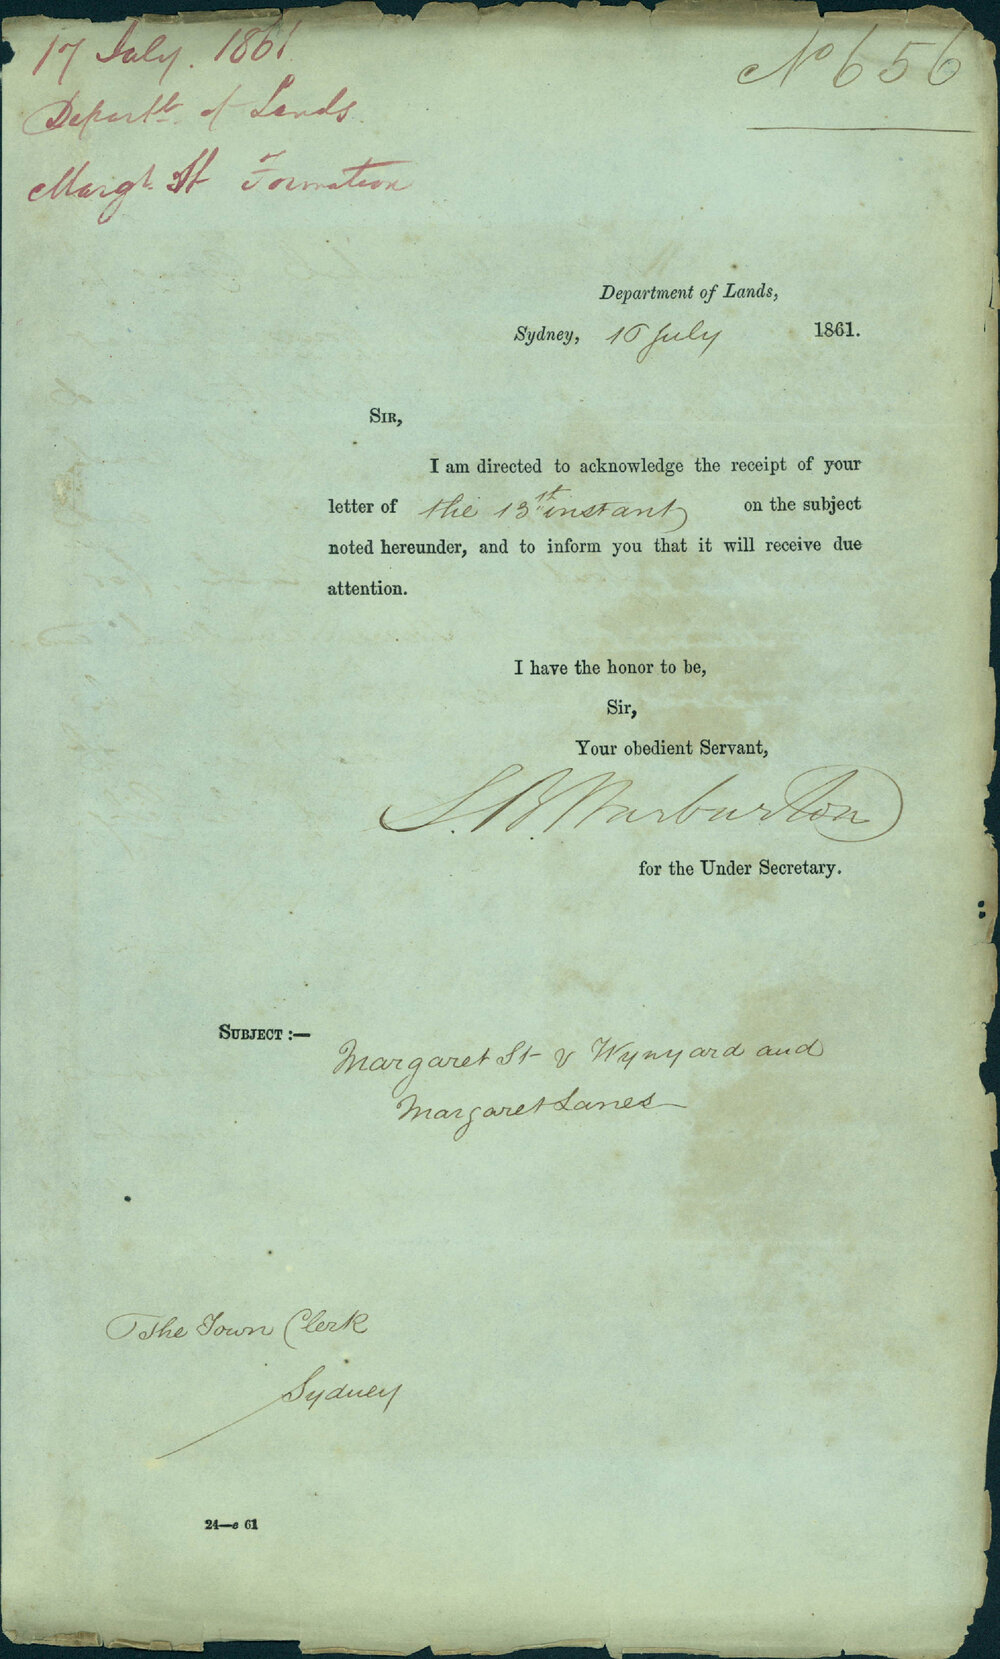 17 July. 1861
No 656
Departt. of Lands
Margt. St Formation
Department of Lands,
Sydney, 16 July 1861.
SIR,
I am directed to acknowledge the receipt of your
letter of the 13st instant on the subject
noted hereunder, and to inform you that it will receive due
attention.
I have the honor to be,
Sir,
Your obedient Servant,
S. B. Warburton
for the Under Secretary.
SUBJECT :—
Margaret St & Wynyard and
Margaret Lanes
The Town Clerk
Sydney
24—e 61